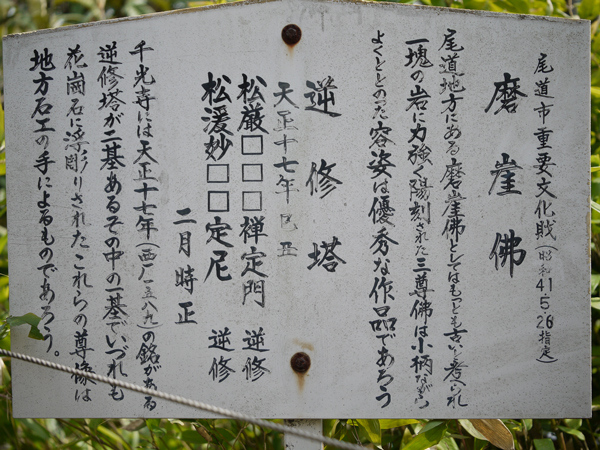 尾道市重要文化財(昭和41.5.26指定)
磨崖佛
尾道地方にある磨崖佛としてはもっとも古いと考へられ
一塊の岩に力強く陽刻された三尊佛は小柄ながら
よくととのった容姿は優秀な作品であろう
逆修塔
天正十七年 己丑
松厳□□□禅定門 逆修
松湲妙□□定尼 逆修
二月時正
千光寺には天正十七年(西ノ一五八九)の銘がある
逆修塔が二基あるその中の一基でいづれも
花崗石に浮彫りされたこれらの尊像は
地方石工の手によるものであろう。